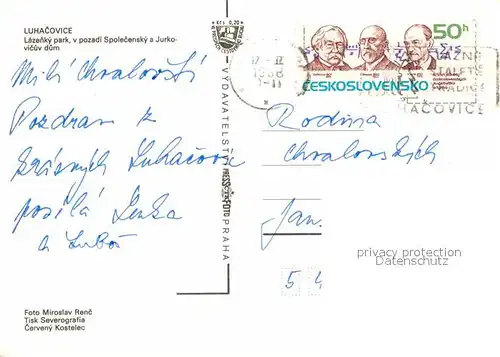 LUHAČOVICE
Lázeňský park, v pozadí Společenský a Jurko-
vičův dům
Milí Chvalovští
Pozdrav z
krásných Luhačovic
posílá Lenka
a Luboš
Kčs 0,20
VYDAVATELSTVÍ
PRESSFOTO
PRAHA
50h
ČESKOSLOVENSKO
LÁZNĚ
HAČOVICE
Rodina
Chvalovských
Jan.
privacy protection
Datenschutz
5 4
Foto Miroslav Renč
Tisk Severografia
Červený Kostelec